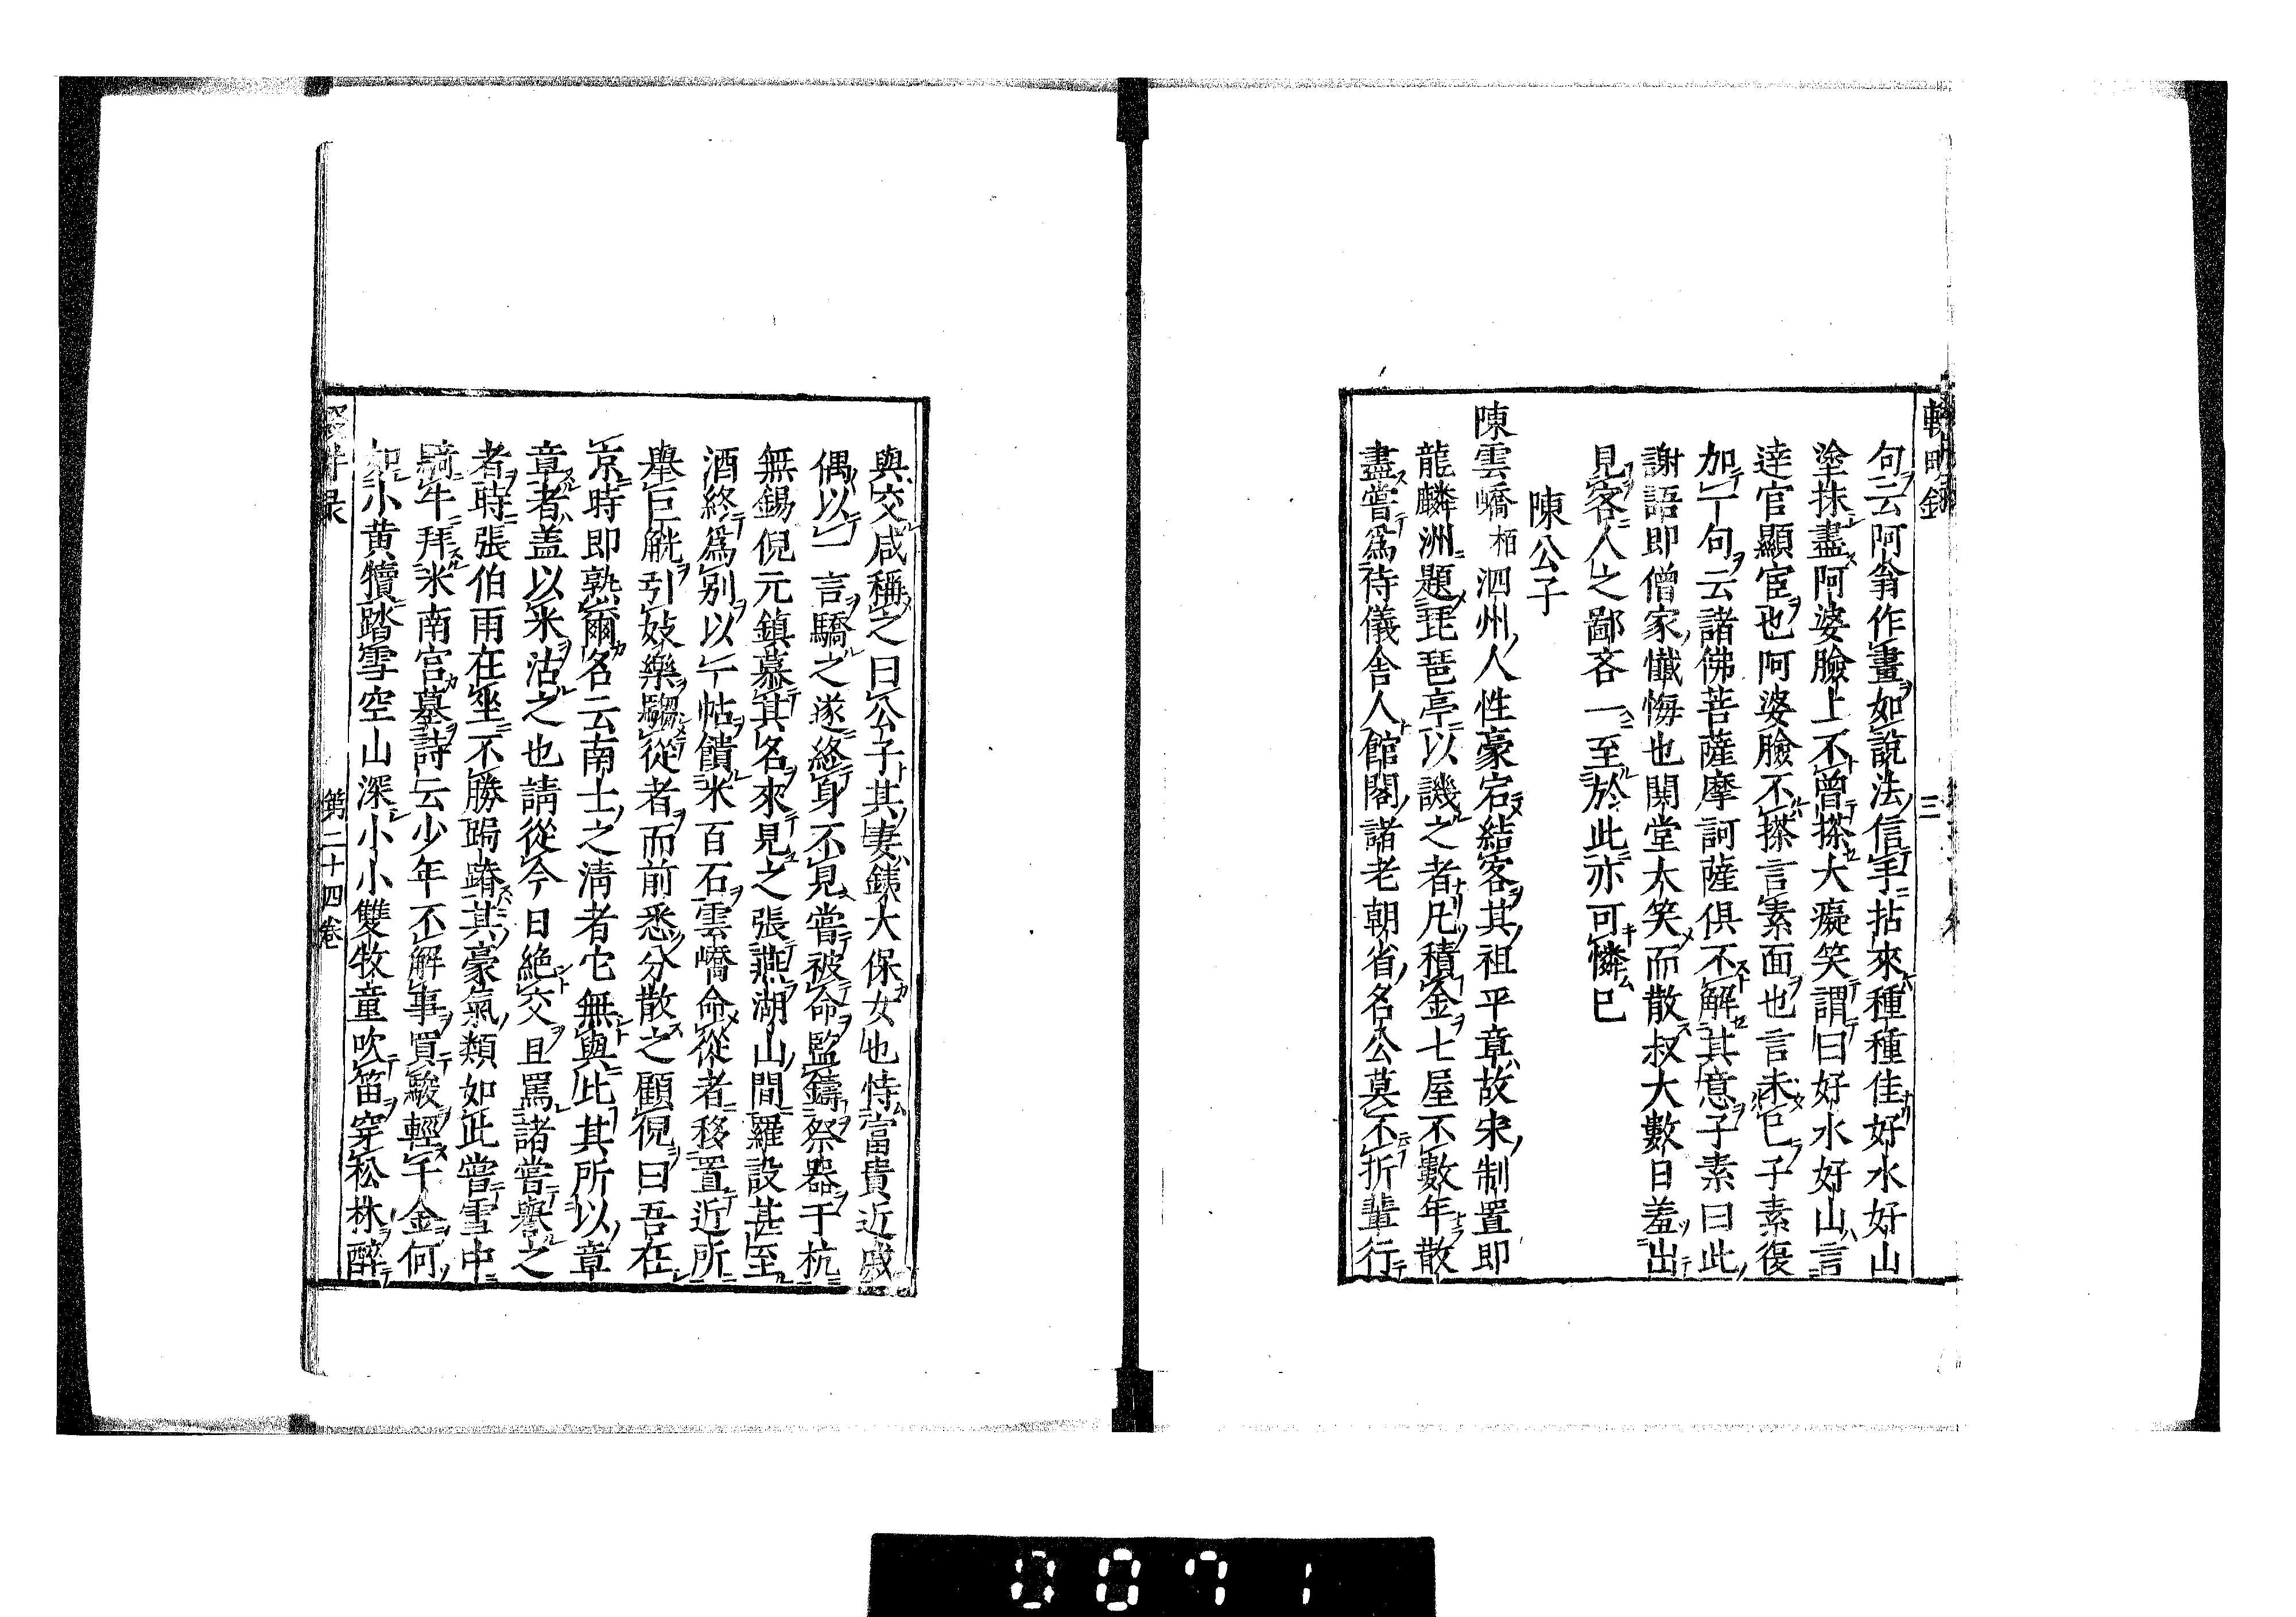 句云阿翁作畫如說法信手拈來種種佳好水好山
塗抹盡阿婆臉上不曾搽大癡笑謂曰好水好山言
達官顯宦也阿婆臉不搽言素面也言未已子素復
加一句云諸佛菩薩摩訶薩俱不解其意子素曰此
謝語即僧家懺悔也閧堂大笑而散叔大數日羞出
見客人之鄙吝一至於此亦可憐已
陳公子
陳雲嶠柏泗州人性豪宕結客其祖平章故宋制置即
龍麟洲題琵琶亭以譏之者凡積金七屋不數年散
盡嘗爲待儀舍人館閣諸老朝省名公莫不折輩行
與交咸稱之曰公子其妻鉄大保女也恃富貴近戚
偶以一言驕之遂終身不見嘗被命監鑄祭器于杭
無錫倪元鎮慕其名來見之張燕湖山間羅設甚至
酒終爲別以一帖饋米百石雲嶠命從者移置近所
舉巨觥引妓樂騶從者而前悉分散之顧倪曰吾在
京時即熟爾名云南士之淸者它無與比其所以章
章者盖以米沽之也請從今日絶交且罵諸嘗譽之
者時張伯雨在坐不勝跼蹐其豪氣類如此嘗雪中
騎牛拜米南宮墓詩云少年不解事買駿輕千金何
如小黄犢踏雪空山深小小雙牧童吹笛穿松林醉
第二十四卷